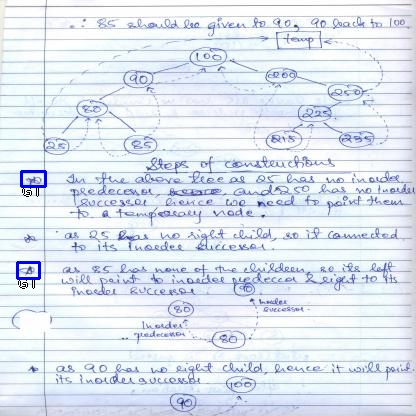 ∴ 85 should be given to 90, 90 back to 100.
temp
100
90 200
80 250
225
25 85 215 235
Steps of constructions
In the above tree as 25 has no inorder
predecessor, and 250 has no inorder
successor, hence we need to point them
to a temporary node.
* as 25 has no right child, so it connected
to its inorder successor.
as 85 has none of the children, so its left
will point to inorder predeccor & right to its
inorder successor
90
80 Inorder
successor.
Inorder
predecessor 80
* as 90 has no right child, hence it will point
its inorder successor
100
90